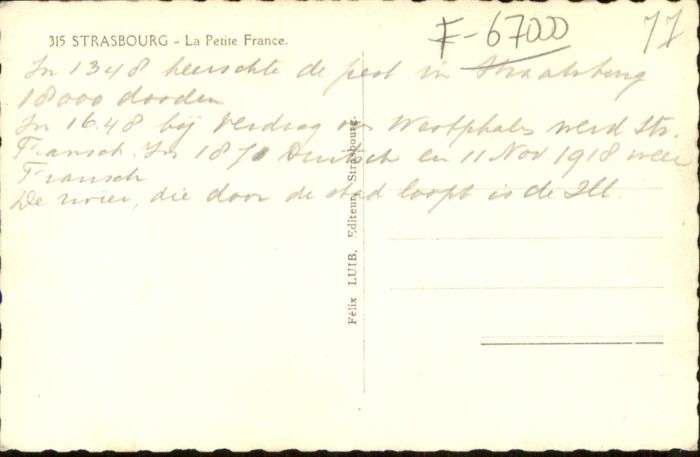 315 STRASBOURG - La Petite France.
F-67000
77
In 1348 heerschte de pest in Straatsburg
18000 dooden
In 1648 bij Verdrag van Westphalen werd Str.
Fransch. In 1870 Duitsch en 11 Nov 1918 weer
Fransch
De rivier, die door de stad loopt is de Ill.
Félix LUIB, Editeur, Strasbourg.